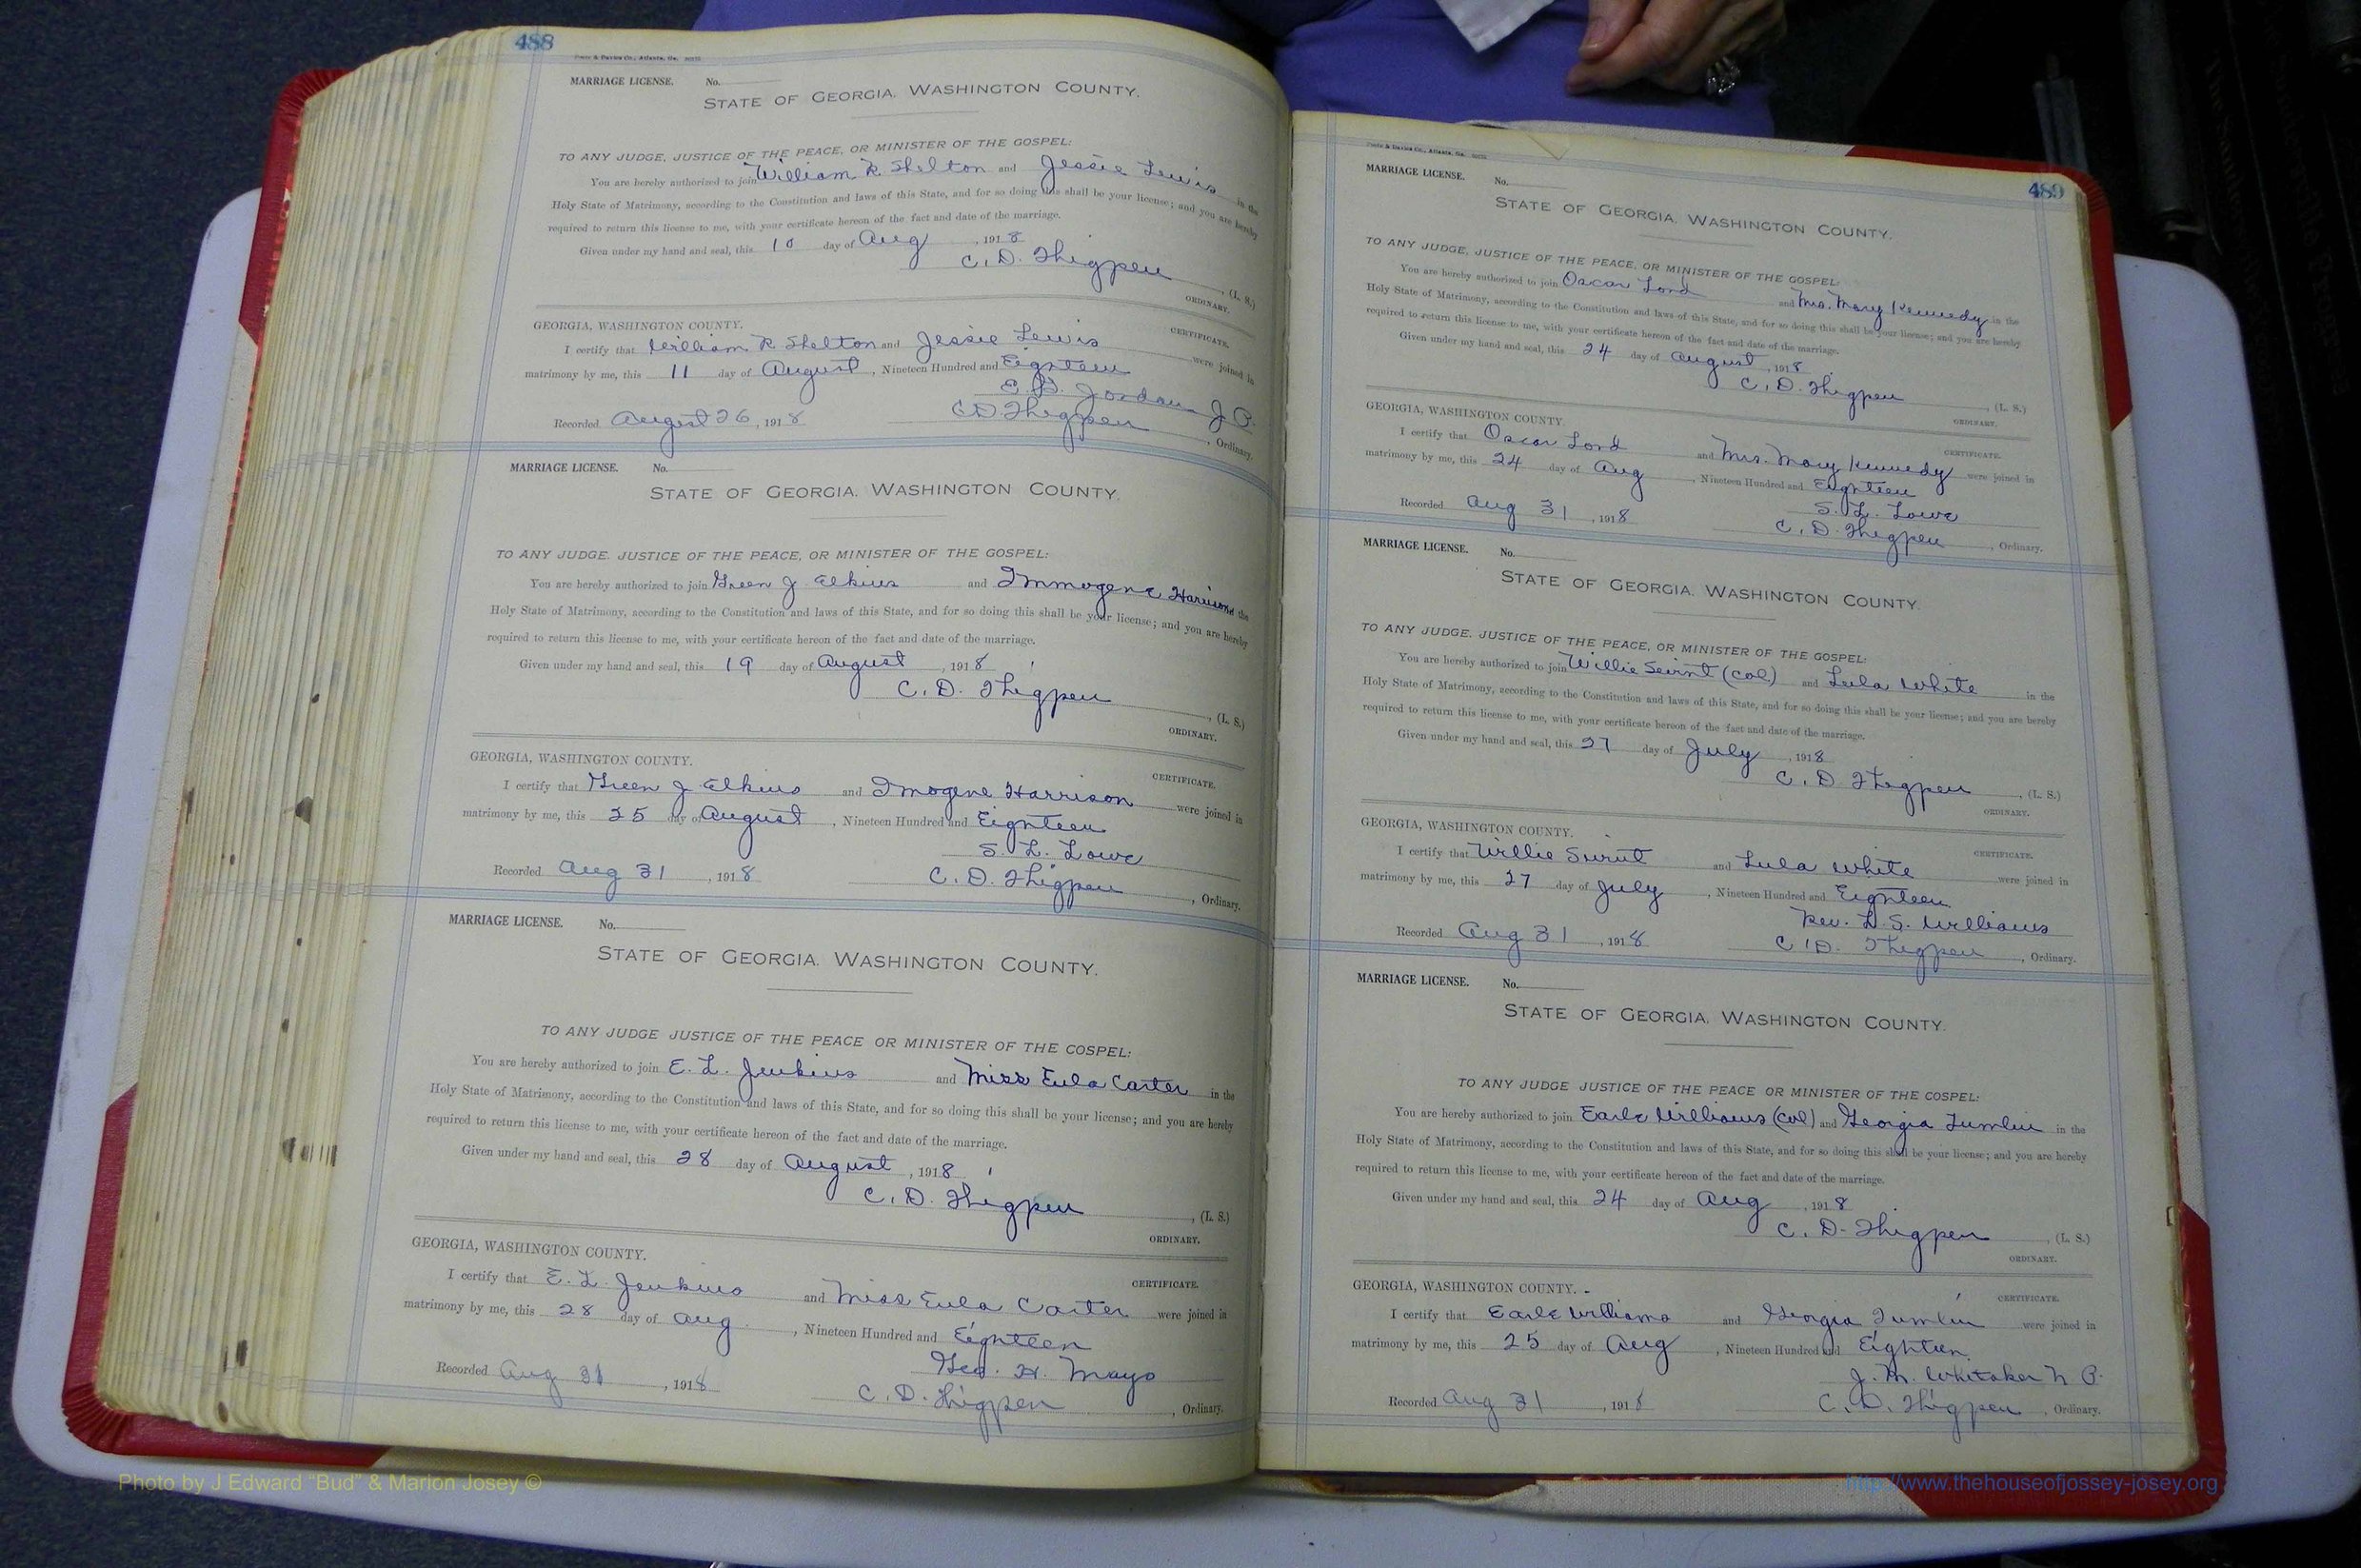 488
MARRIAGE LICENSE. No.
STATE OF GEORGIA. WASHINGTON COUNTY.
TO ANY JUDGE, JUSTICE OF THE PEACE, OR MINISTER OF THE GOSPEL:
You are hereby authorized to join William R Shelton and Jessie Lewis in the
Holy State of Matrimony, according to the Constitution and laws of this State, and for so doing this shall be your license; and you are hereby
required to return this license to me, with your certificate hereon of the fact and date of the marriage.
Given under my hand and seal, this 10 day of Aug, 1918
C. D. Thigpen, (L. S.)
ORDINARY.
GEORGIA, WASHINGTON COUNTY.
CERTIFICATE.
I certify that William R Shelton and Jessie Lewis were joined in
matrimony by me, this 11 day of August, Nineteen Hundred and Eighteen
Jordan J. P.
Recorded August 26, 1918 C D Thigpen, Ordinary.
MARRIAGE LICENSE. No.
STATE OF GEORGIA. WASHINGTON COUNTY.
TO ANY JUDGE. JUSTICE OF THE PEACE, OR MINISTER OF THE GOSPEL:
You are hereby authorized to join Green J Elkins and Immogene Harrison the
Holy State of Matrimony, according to the Constitution and laws of this State, and for so doing this shall be your license; and you are hereby
required to return this license to me, with your certificate hereon of the fact and date of the marriage.
Given under my hand and seal, this 19 day of August, 1918
C. D. Thigpen, (L. S.)
ORDINARY.
GEORGIA, WASHINGTON COUNTY.
CERTIFICATE.
I certify that Green J Elkins and Imogene Harrison were joined in
matrimony by me, this 25 day of August, Nineteen Hundred and Eighteen
S. L. Lowe
Recorded Aug 31, 1918 C. D. Thigpen, Ordinary.
MARRIAGE LICENSE. No.
STATE OF GEORGIA. WASHINGTON COUNTY.
TO ANY JUDGE JUSTICE OF THE PEACE OR MINISTER OF THE GOSPEL:
You are hereby authorized to join E. L. Jenkins and Miss Eula Carter in the
Holy State of Matrimony, according to the Constitution and laws of this State, and for so doing this shall be your license; and you are hereby
required to return this license to me, with your certificate hereon of the fact and date of the marriage.
Given under my hand and seal, this 28 day of August, 1918
C. D. Thigpen, (L. S.)
ORDINARY.
GEORGIA, WASHINGTON COUNTY.
CERTIFICATE.
I certify that E. L. Jenkins and Miss Eula Carter were joined in
matrimony by me, this 28 day of Aug, Nineteen Hundred and Eighteen
Geo. H. Mayo
Recorded Aug 31, 1918 C. D. Thigpen, Ordinary.
489
MARRIAGE LICENSE. No.
STATE OF GEORGIA. WASHINGTON COUNTY.
TO ANY JUDGE, JUSTICE OF THE PEACE, OR MINISTER OF THE GOSPEL:
You are hereby authorized to join Oscar Lord and Mrs. Mary Kennedy in the
Holy State of Matrimony, according to the Constitution and laws of this State, and for so doing this shall be your license; and you are hereby
required to return this license to me, with your certificate hereon of the fact and date of the marriage.
Given under my hand and seal, this 24 day of August, 1918
C. D. Thigpen, (L. S.)
ORDINARY.
GEORGIA, WASHINGTON COUNTY.
CERTIFICATE.
I certify that Oscar Lord and Mrs. Mary Kennedy were joined in
matrimony by me, this 24 day of Aug, Nineteen Hundred and Eighteen
S. L. Lowe
Recorded Aug 31, 1918 C. D. Thigpen, Ordinary.
MARRIAGE LICENSE. No.
STATE OF GEORGIA. WASHINGTON COUNTY.
TO ANY JUDGE. JUSTICE OF THE PEACE, OR MINISTER OF THE GOSPEL:
You are hereby authorized to join Willie (Col) and Lula White in the
Holy State of Matrimony, according to the Constitution and laws of this State, and for so doing this shall be your license; and you are hereby
required to return this license to me, with your certificate hereon of the fact and date of the marriage.
Given under my hand and seal, this 27 day of July, 1918
C. D Thigpen, (L. S.)
ORDINARY.
GEORGIA, WASHINGTON COUNTY.
CERTIFICATE.
I certify that Willie and Lula White were joined in
matrimony by me, this 27 day of July, Nineteen Hundred and Eighteen
Rev. L. S. Williams
Recorded Aug 31, 1918 C. D. Thigpen, Ordinary.
MARRIAGE LICENSE. No.
STATE OF GEORGIA. WASHINGTON COUNTY.
TO ANY JUDGE JUSTICE OF THE PEACE OR MINISTER OF THE GOSPEL:
You are hereby authorized to join Earle Williams (Col) and Georgia Tumlin in the
Holy State of Matrimony, according to the Constitution and laws of this State, and for so doing this shall be your license; and you are hereby
required to return this license to me, with your certificate hereon of the fact and date of the marriage.
Given under my hand and seal, this 24 day of Aug, 1918
C. D. Thigpen, (L. S.)
ORDINARY.
GEORGIA, WASHINGTON COUNTY.
CERTIFICATE.
I certify that Earle Williams and Georgia Tumlin were joined in
matrimony by me, this 25 day of Aug, Nineteen Hundred and Eighteen
J. M. Whitaker N. P.
Recorded Aug 31, 1918 C. D. Thigpen, Ordinary.
Photo by J Edward "Bud" & Marion Josey ©
http://www.thehouseofjossey-josey.org